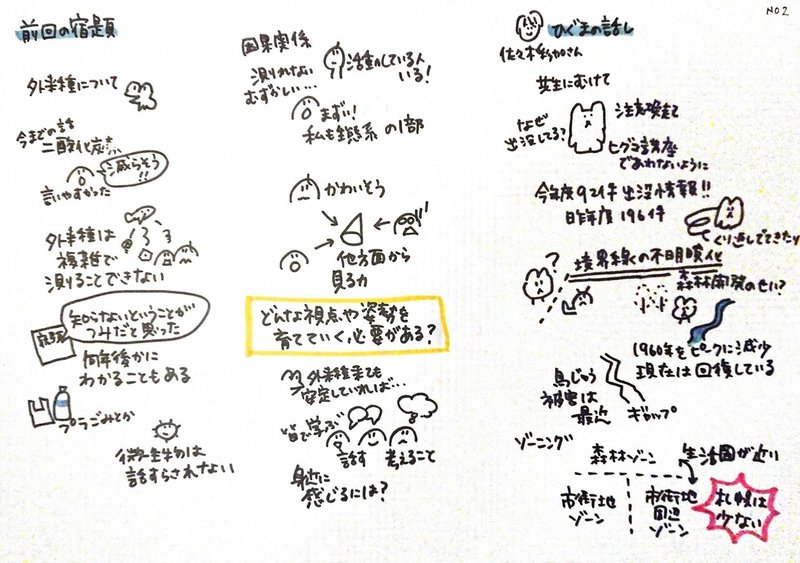 NO2
前回の宿題
外来種について
今までの話
二酸化炭素
減らそう!!
言いやすかった
外来種は
複雑で
測ることできない
知らないということが
つみだと思った
何年後かに
わかることもある
プラごみとか
微生物は
話すらされない
因果関係
測りきれない
むずかしい…
活動している人
いる!
まずい!
私も生態系の1部
かわいそう
他方面から
見る力
どんな視点や姿勢を
育てていく必要がある?
外来種来ても
安定していれば…
皆で学ぶ
話す
考えること
身近に
感じるには?
ひぐまの話し
佐々木彩加さん
共生にむけて
なぜ
出没してる?
注意喚起
ヒグマ講座
であわないように
今年度92件出没情報!!
昨年度196件
くり返しでてきたり
境界線の不明瞭化
森林開発のせい?
1960年をピークに減少
現在は回復している
鳥じゅう
被害は
最近
ギャップ
ゾーニング
森林ゾーン
生活圏が近い
市街地
ゾーン
市街地
周辺
ゾーン
札幌は
少ない